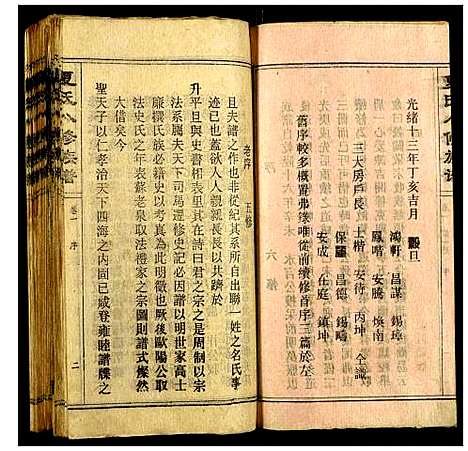 光緒十三年丁亥吉月 穀旦
鴻軒 昌謀 錫璋
鳳喈 安騰 煥南
三大房戶長 士楷 安待 丙坤 仝識
保 昌德 錫疇
安成 在庭 鎮坤
舊序較多概置弗錄唯從前續修首序三篇於左
老序 五修
且夫譜之作也非從紀其系所自出聯一姓之名氏事
迹已也蓋欲人人親親長長以共躋於
升平且與史書相表里其在詩曰君之宗之是周制以宗
法系屬夫天下司馬遷修史記必因譜以明世家高士
廉撰氏族必籍此明徵也厥後歐陽公取
法史氏之年表蘇老泉取法禮家之宗圖則譜式燦然
大備矣今
聖天子以仁孝治天下四海之內固已咸登雍睦譜牒之
夏氏八修族譜
卷一 序
二